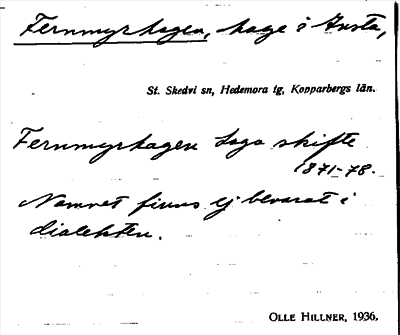 Fernmyrhagen, hage i Knsta,
St. Skedvi sn, Hedemora tg, Kopparbergs län.
Fernmyrhagen Laga skifte
1871-78.
Namnet finns ej bevarat i
dialekten.
OLLE HILLNER, 1936.